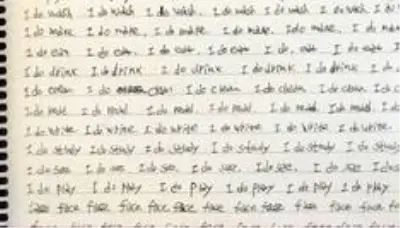 I do wash I do wash I do wash. I do wash I do wash I do wash I do
I do make I do make. I do make I do make I do make. I do make
I do eat I do eat. I do eat I do eat I do eat I do eat I
I do drink I do drink I do drink I do drink I do drink I do
I do clean I do clean I do clean I do clean I do clean I do c
I do read I do read I do read. I do read I do read I do read. I do
I do write I do write I do write I do write I do write I do write.
I do study I do study I do study I do study I do study I do study
I do see I do see I do see. I do see I do see. I do see I do see
I do play I do play I do play I do play I do play I do play
face face face face face face face face face face face face f